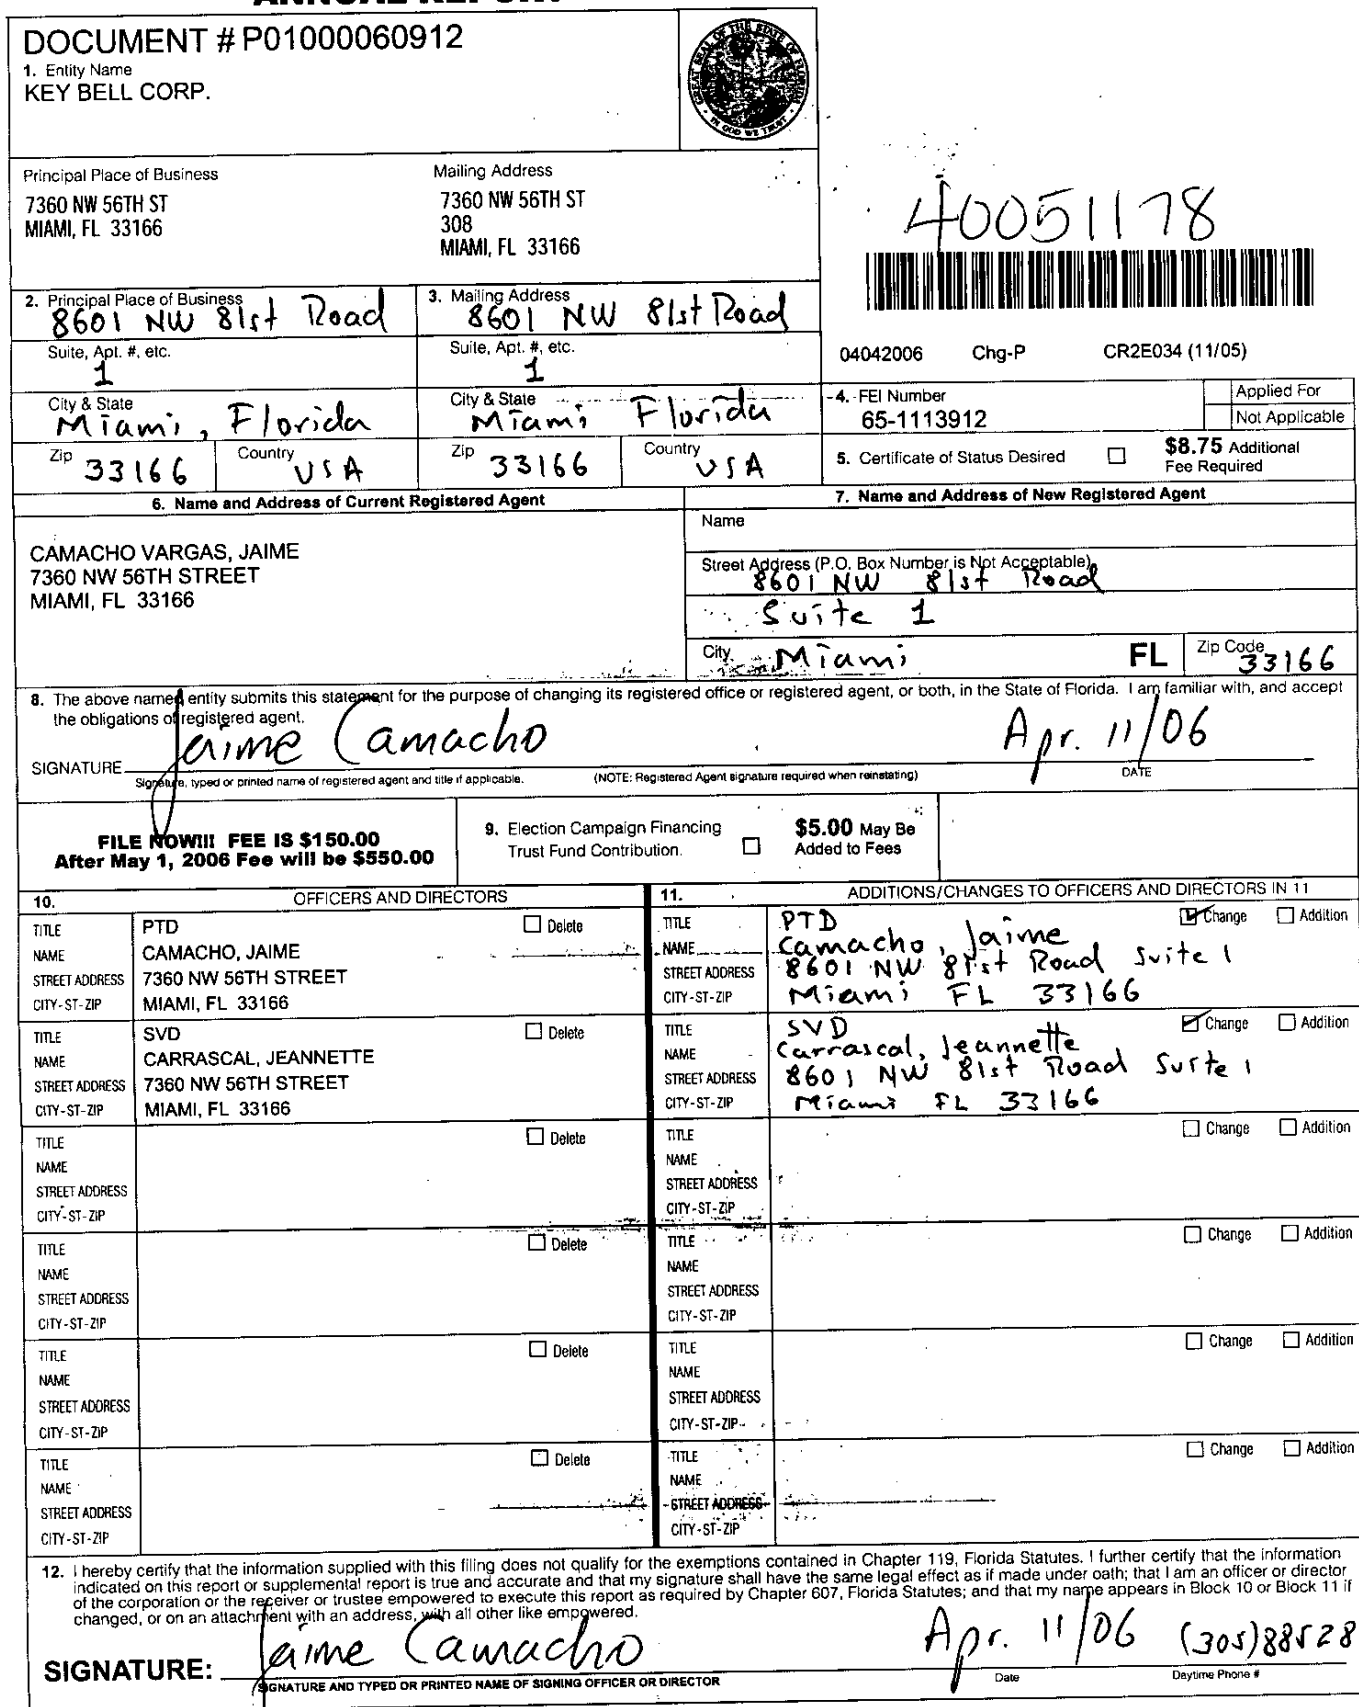 DOCUMENT # P01000060912
1. Entity Name
KEY BELL CORP.
GREAT SEAL OF THE STATE OF FLORIDA
IN GOD WE TRUST
Principal Place of Business
7360 NW 56TH ST
MIAMI, FL 33166
Mailing Address
7360 NW 56TH ST
308
MIAMI, FL 33166
40051178
2. Principal Place of Business
8601 NW 81st Road
Suite, Apt. #, etc.
1
City & State
Miami, Florida
Zip 33166 Country USA
3. Mailing Address
8601 NW 81st Road
Suite, Apt. #, etc.
1
City & State
Miami Florida
Zip 33166 Country USA
04042006 Chg-P CR2E034 (11/05)
4. FEI Number
65-1113912
Applied For
Not Applicable
5. Certificate of Status Desired
$8.75 Additional
Fee Required
6. Name and Address of Current Registered Agent
CAMACHO VARGAS, JAIME
7360 NW 56TH STREET
MIAMI, FL 33166
7. Name and Address of New Registered Agent
Name
Street Address (P.O. Box Number is Not Acceptable)
8601 NW 81st Road
Suite 1
City Miami FL Zip Code 33166
8. The above named entity submits this statement for the purpose of changing its registered office or registered agent, or both, in the State of Florida. I am familiar with, and accept
the obligations of registered agent.
SIGNATURE Jaime Camacho Apr. 11/06
Signature, typed or printed name of registered agent and title if applicable. (NOTE: Registered Agent signature required when reinstating) DATE
FILE NOW!!! FEE IS $150.00
After May 1, 2006 Fee will be $550.00
9. Election Campaign Financing
Trust Fund Contribution.
$5.00 May Be
Added to Fees
10. OFFICERS AND DIRECTORS
11. ADDITIONS/CHANGES TO OFFICERS AND DIRECTORS IN 11
TITLE PTD Delete
NAME CAMACHO, JAIME
STREET ADDRESS 7360 NW 56TH STREET
CITY-ST-ZIP MIAMI, FL 33166
TITLE PTD Change Addition
NAME Camacho, Jaime
STREET ADDRESS 8601 NW 81st Road Suite 1
CITY-ST-ZIP Miami FL 33166
TITLE SVD Delete
NAME CARRASCAL, JEANNETTE
STREET ADDRESS 7360 NW 56TH STREET
CITY-ST-ZIP MIAMI, FL 33166
TITLE SVD Change Addition
NAME Carrascal, Jeannette
STREET ADDRESS 8601 NW 81st Road Suite 1
CITY-ST-ZIP Miami FL 33166
TITLE Delete
NAME
STREET ADDRESS
CITY-ST-ZIP
TITLE Change Addition
NAME
STREET ADDRESS
CITY-ST-ZIP
TITLE Delete
NAME
STREET ADDRESS
CITY-ST-ZIP
TITLE Change Addition
NAME
STREET ADDRESS
CITY-ST-ZIP
TITLE Delete
NAME
STREET ADDRESS
CITY-ST-ZIP
TITLE Change Addition
NAME
STREET ADDRESS
CITY-ST-ZIP
TITLE Delete
NAME
STREET ADDRESS
CITY-ST-ZIP
TITLE Change Addition
NAME
STREET ADDRESS
CITY-ST-ZIP
12. I hereby certify that the information supplied with this filing does not qualify for the exemptions contained in Chapter 119, Florida Statutes. I further certify that the information
indicated on this report or supplemental report is true and accurate and that my signature shall have the same legal effect as if made under oath; that I am an officer or director
of the corporation or the receiver or trustee empowered to execute this report as required by Chapter 607, Florida Statutes; and that my name appears in Block 10 or Block 11 if
changed, or on an attachment with an address, with all other like empowered.
SIGNATURE: Jaime Camacho Apr. 11/06 (305)88528
SIGNATURE AND TYPED OR PRINTED NAME OF SIGNING OFFICER OR DIRECTOR Date Daytime Phone #